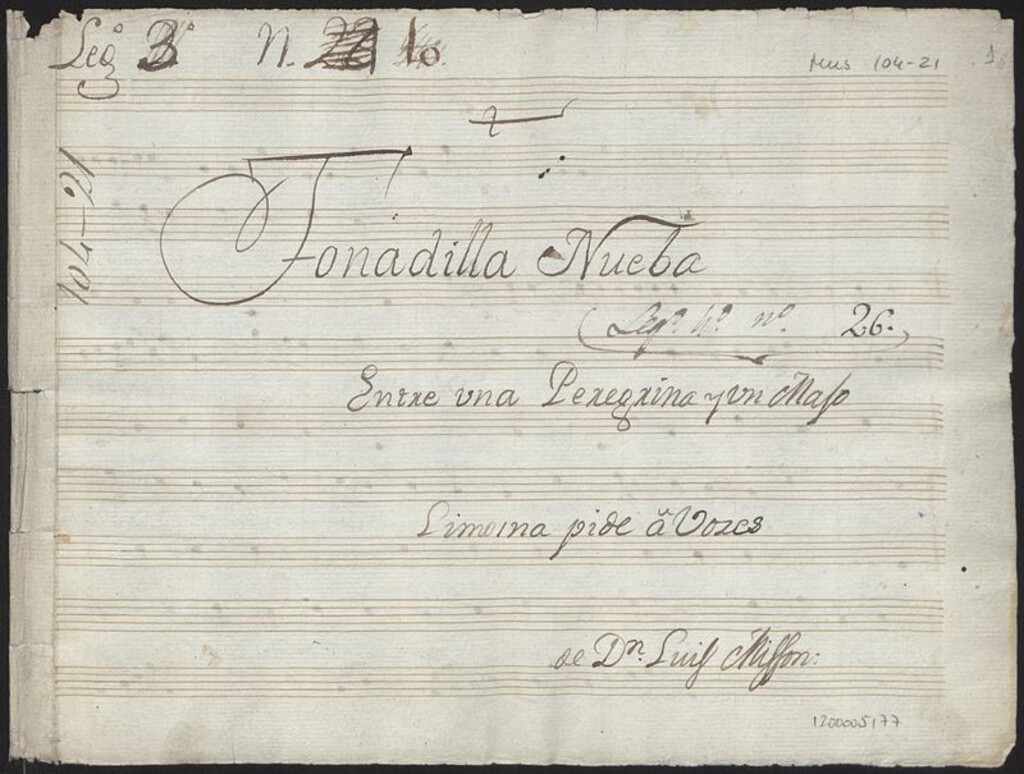 Leg.º 3º N. 10.
Mus 104-21
1
104-21
Tonadilla Nueba
(Leg.º 4.º nº. 26.)
Entre vna Peregrina y vn Majo
Limosna pide â Vozes
de Dn. Luis Misson:
1200005177